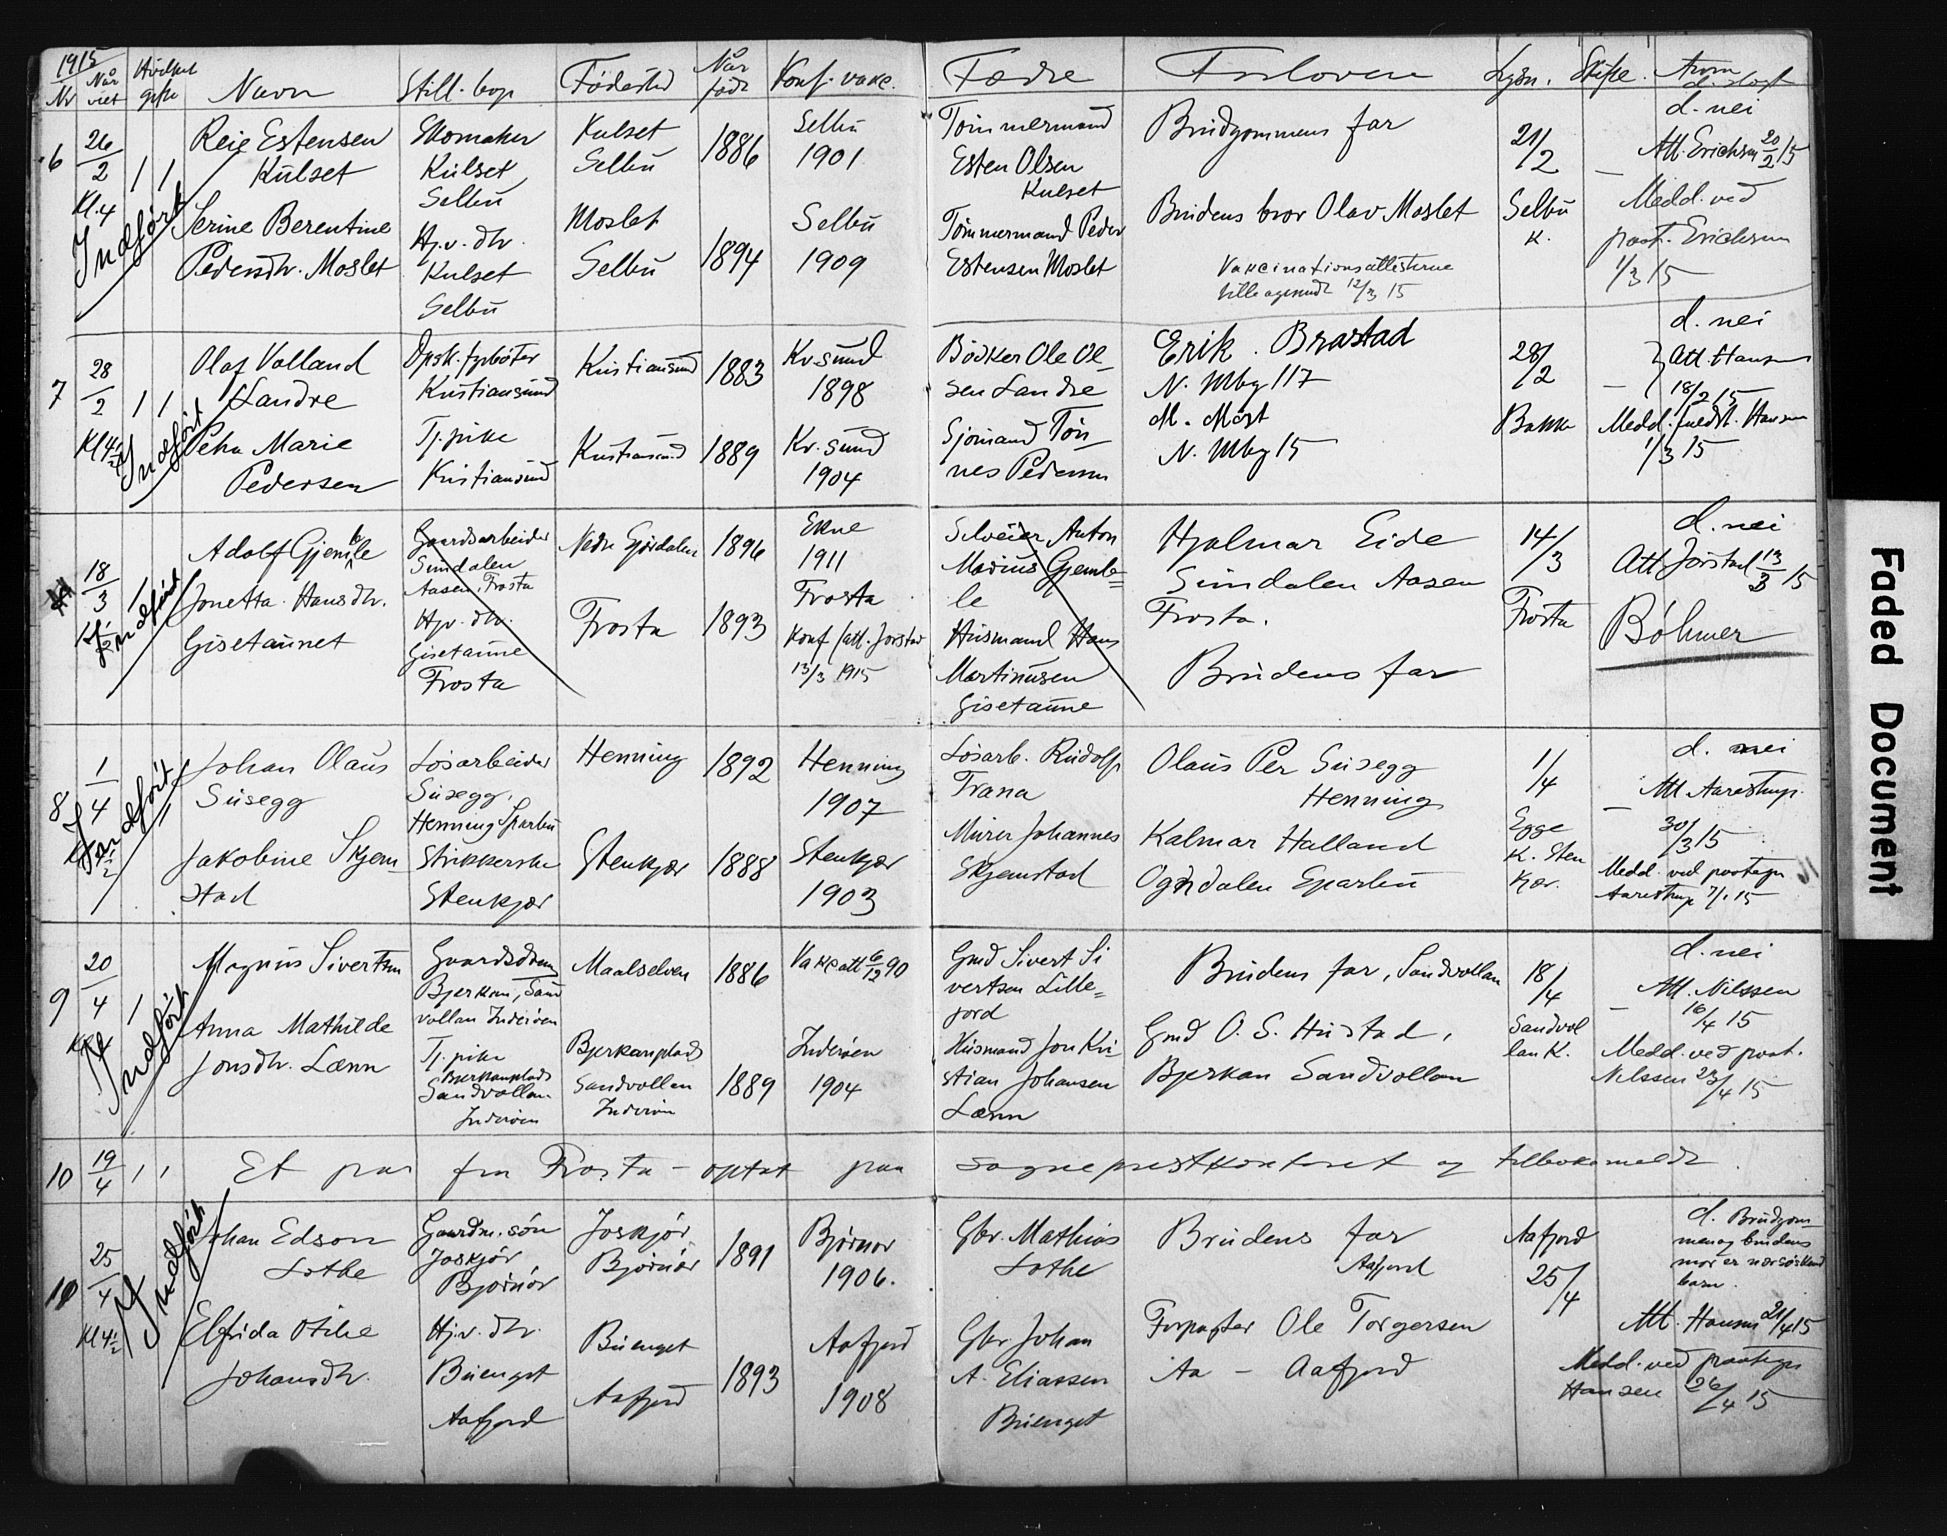 1915
Nr Når viet Hvilket gifte Navn Still. bop Fødested Når født Konf. vakc. Fædre Forlovere Lysn. Skifte. Anm.
6 26/2 Kl. 4 1 1 Indført
Reie Estensen
Kulset
Skomaker
Kulset
Selbu
Kulset
Selbu
1886
Selbu
1901
Tömmermand
Esten Olsen
Kulset
Brudgommens far
21/2
d. nei
Att. Erichsen 20/2 15
Serine Berentine
Pedersdtr. Moslet
Hj.v. dtr.
Kulset
Selbu
Moslet
Selbu
1894
Selbu
1909
Tömmermand Peder
Estensen Moslet
Brudens bror Olav Moslet
Vakcinationsattesterne
12/3 15
Selbu
K.
Medd. ved
post. Erichsen
1/3 15
7 28/2 Kl 4 1/2 1 1 Indført
Olaf Valland
Landre
Kristiansund
Kristiansund
1883
Kr.sund
1898
Bödker Ole Ol-
sen Landre
Erik Brastad
N. Mbg 117
28/2
d. nei
Att. Hansen
18/2 15
Petra Marie
Pedersen
Tj. pike
Kristiansund
Kristiansund
1889
Kr. sund
1904
Sjömand Tön-
nes Pedersen
M. Möst
N. Mbg 15
Bakke
Medd. Hansen
1/3 15
18/3 Kl. 1/2 1 Indført
Adolf Gjemble
Gaardsarbeider
Sundalen
Aasen, Frosta
Nedre Stjördalen
1896
Ekne
1911
Selveier Anton
Marius Gjemb=
le
Hjalmar Eide
Sundalen Aasen
Frosta.
14/3
d. nei
Att Jorstad 13/3 15
Jonetta Hansdtr.
Gisetaunet
Hjv. dtr.
Gisetaune
Frosta
Frosta
1893
Frosta
Konf (att. Jorstad
13/3 1915
Husmand Hans
Martinusen
Gisetaune
Brudens far
Frosta
Böhmer
8 1/4 Indført
Johan Olaus
Susegg
Lösarbeider
Susegg,
Henning Sparbu
Henning
1892
Henning
1907
Lösarb. Rudolf
Frana
Olaus Per Susegg
Henning
1/4
d. nei
Att Aarestrup.
30/3 15
Jakobine Skjem-
stad
Strikkerske
Stenkjær
Stenkjær
1888
Stenkjær
1903
Murer Johannes
Skjemstad
Kalmar Halland
Ogndalen Sparbu
Egge
K. Sten
kjær.
Medd. ved postopr
Aarestrup 7/4 15
9 20/4 1 Indført
Magnus Sivertsen
Gaardsdreng
Bjerkan, Sand
vollan Inderöen
Maalselven
1886
Vakc att 6/12 90
Gmd Sivert Si
vertsen Lille=
jord
Brudens far, Sandvollan
18/4
d. nei
Att. Nilssen
16/4 15
Anna Mathilde
Jonsdtr. Lænn
Tj. pike
Bjerkanplads
Sandvollan
Inderöen
Bjerkanplads
Sandvollan
Inderöen
1889
Inderöen
1904
Husmand Jon Kri
stian Johansen
Lænn
Gmd O. S. Hustad,
Bjerkan Sandvollan
Sandvol
lan K.
Medd. ved post.
Nilssen 23/4 15
10 19/4 1 1 Et par fra Frosta - optat paa sogneprestkontoret og tilbakemeldt.
10 25/4 Kl 4 1/2 Indført
Johan Edson
Lothe
Gaardm. sön
Joskjör
Björnör
Joskjör
Björnör
1891
Björnör
1906.
Gbr. Mathias
Lothe
Brudens far
Aafjord
Aafjord
25/4
d. Brudgom-
men og brudens
mor er næssöskend
barn.
Elfrida Otilie
Johansdtr.
Hj.v. dtr.
Buenget
Aafjord
Buenget
Aafjord
1893
Aafjord
1908
Gbr Johan
A. Eliassen
Buenget
Forpagter Ole Torgersen
Aa - Aafjord
Att. Hansen 21/4 15
Medd. ved postopr
Hansen 26/4 15
Faded Document